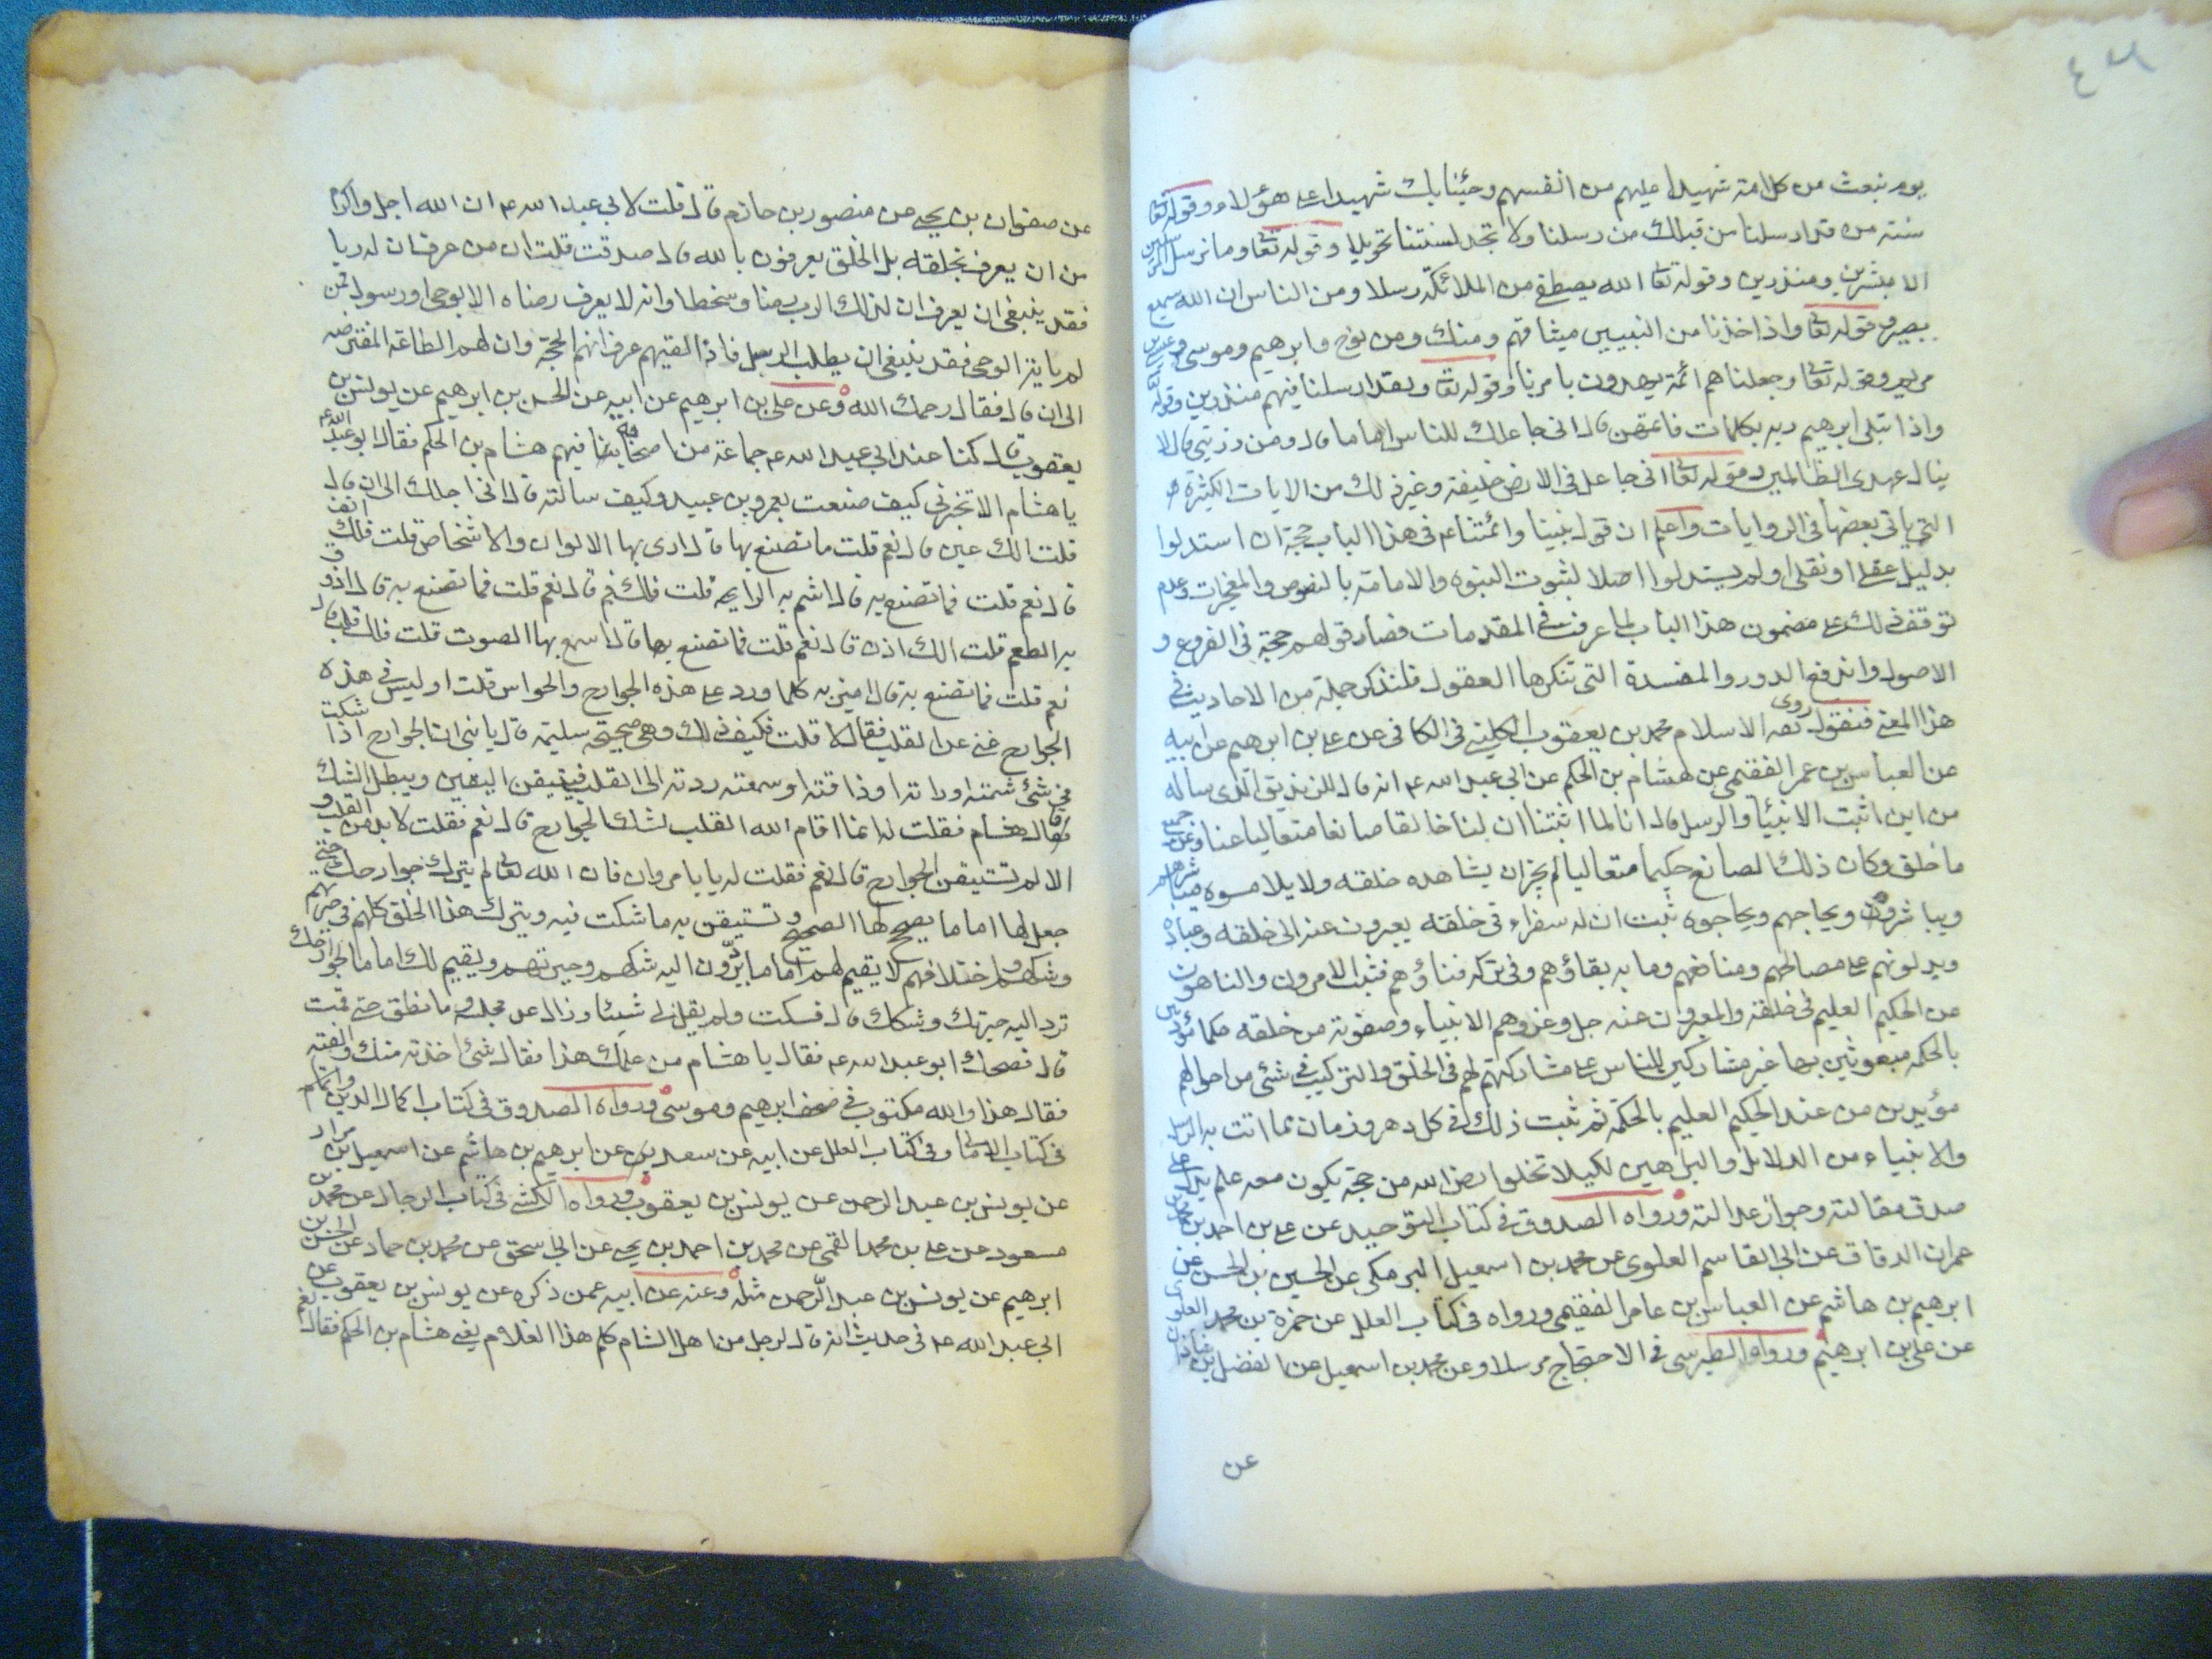 ٤٦
يوم نبعث من كل امة شهيدا عليهم من انفسهم وجئنا بك شهيدا على هؤلاء وقوله تعا
سنة من قد ارسلنا من قبلك من رسلنا ولا تجد لسنتنا تحويلا وقوله تعا وما نرسل المرسلين
الا مبشرين ومنذرين وقوله تعا الله يصطفى من الملائكة رسلا ومن الناس ان الله سميع
بصير وقوله تعا واذ اخذنا من النبيين ميثاقهم ومنك ومن نوح وابرهيم وموسى وعيسى بن
مريم وقوله تعا وجعلناهم ائمة يهدون بامرنا وقوله تعا ولقد ارسلنا فيهم منذرين وقوله
واذ ابتلى ابرهيم ربه بكلمات فاتمهن قال انى جاعلك للناس اماما قال ومن ذريتى قال لا
ينال عهدى الظالمين وقوله تعا انى جاعل فى الارض خليفة وغير ذلك من الايات الكثيرة
التى ياتى بعضها فى الروايات واعلم ان قول نبينا وائمتنا عم فى هذا الباب حجة ان استدلوا
بدليل عقلى او نقلى او لم يستدلوا اصلا لثبوت النبوه والامامة بالنصوص والمعجزات وعدم
توقف ذلك على مضمون هذا الباب لما عرفت فى المقدمات فصار قولهم حجة فى الفروع و
الاصول واندفع الدور والمفسدة التى تنكرها العقول فلنذكر جملة من الاحاديث فى
هذا المعنى فنقول روى ثقه الاسلام محمد بن يعقوب الكلينى فى الكافى عن على بن ابرهيم عن ابيه
عن العباس بن عمر الفقيمى عن هشام بن الحكم عن ابى عبد الله عم انه قال للزنديق الذى ساله
من اين اثبت الانبيآء والرسل قال انا لما اثبتنا ان لنا خالقا صانعا متعاليا عنا وعن جميع
ما خلق وكان ذلك الصانع حكيما متعاليا لم يجز ان يشاهده خلقه ولا يلامسوه فيباشرهم
ويباشروه ويحاجهم ويحاجوه ثبت ان له سفراء فى خلقه يعبرون عنه الى خلقه وعباده
ويدلونهم على مصالحهم ومنافعهم وما به بقاؤهم وفى تركه فناؤهم فثبت الامرون والناهون
عن الحكيم العليم فى خلقه والمعبرون عنه جل وعز وهم الانبياء وصفوته من خلقه حكما مؤدبين
بالحكمه مبعوثين بها غير مشاركين للناس على مشاركتهم لهم فى الخلق والتركيب فى شئ من احوالهم
مؤيدين من عند الحكيم العليم بالحكمة ثم ثبت ذلك فى كل دهر وزمان بما اتت به الرسل
والانبياء من الدلايل والبراهين لكيلا تخلوا ارض الله من حجة يكون معه علم يدل على
صدق مقالته وجواز عدالته ورواه الصدوق فى كتاب التوحيد عن على بن احمد بن محمد بن
عمران الدقاق عن ابى القاسم العلوى عن محمد بن اسمعيل البرمكى عن الحسين بن الحسن عن
ابرهيم بن هاشم عن العباس بن عامر الفقيمى ورواه فى كتاب العلل عن حمزة بن محمد العلوى
عن على بن ابرهيم ورواه الطبرسى فى الاحتجاج مرسلا وعن محمد بن اسمعيل عن الفضل بن شاذان
عن
عن صفوان بن يحيى عن منصور بن حازم قال قلت لابى عبد الله عم ان الله اجل واكرم
من ان يعرف بخلقه بل الخلق يعرفون بالله قال صدقت قلت ان من عرف ان له ربا
فقد ينبغى ان يعرف ان لذلك الرب رضا وسخطا وانه لا يعرف رضاه الا بوحى او رسول فمن
لم ياته الوحى فقد ينبغى ان يطلب الرسل فاذا لقيهم عرف انهم الحجة وان لهم الطاعة المفترضه
الى ان قال فقال رحمك الله وعن على بن ابرهيم عن ابيه عن الحسن بن ابرهيم عن يونس بن
يعقوب قال كنا عند ابى عبد الله عم جماعة من اصحابه فيهم هشام بن الحكم فقال ابو عبد الله عم
يا هشام الا تخبرنى كيف صنعت بعمرو بن عبيد وكيف سالته قال انى اجلك الى ان قال
قلت الك عين قال نعم قلت ما تصنع بها قال ارى بها الالوان والاشخاص قلت فلك انف
قال نعم قلت فما تصنع به قال اشم به الرايحه قلت فلك فم قال نعم قلت فما تصنع به قال اذوق
به الطعم قلت الك اذن قال نعم قلت فما تصنع بها قال اسمع بها الصوت قلت فلك قلب قال
نعم قلت فما تصنع به قال اميز به كلما ورد على هذه الجوارح والحواس قلت اوليس فى هذه
الجوارح غنى عن القلب فقال لا قلت فكيف ذلك وهى صحيحه سليمة قال يا بنى ان الجوارح اذا شكت
فى شئ شمته او راته او ذاقته او سمعته ردته الى القلب فيتيقن اليقين ويبطل الشك
فقال هشام فقلت له انما اقام الله القلب لشك الجوارح قال نعم فقلت لا بد من القلب و
الا لم تستيقن الجوارح قال نعم فقلت له يا با مروان فان الله تعا لم يترك جوارحك حتى
جعل لها اماما يصحح لها الصحيح وتستيقن به ما شكت فيه ويترك هذا الخلق كلهم فى حيرتهم
وشكهم واختلافهم لا يقيم لهم اماما يردون اليه شكهم وحيرتهم ويقيم لك اماما لجوارحك
ترد اليه حيرتك وشكك قال فسكت ولم يقل لى شيئا وزال عن مجلسه وما نطق حتى قمت
قال فضحك ابو عبد الله عم فقال يا هشام من علمك هذا فقال شئ اخذته منك والفته
فقال هذا والله مكتوب فى صحف ابرهيم وموسى ورواه الصدوق فى كتاب اكمال الدين واتمام
فى كتاب الامالى وفى كتاب العلل عن ابيه عن سعد بن عن ابرهيم بن هاشم عن اسمعيل بن مرار
عن يونس بن عبد الرحمن عن يونس بن يعقوب ورواه الكشى فى كتاب الرجال عن محمد بن
مسعود عن على بن محمد القمى عن محمد بن احمد بن يحيى عن ابى اسحق عن محمد بن حماد عن الحسن بن
ابرهيم عن يونس بن عبد الرّحمن مثله وعنه عن ابيه عمن ذكره عن يونس بن يعقوب عن
ابى عبد الله عم فى حديث انه قال لرجل من اهل الشام كلم هذا الغلام يعنى هشام بن الحكم فقال نعم